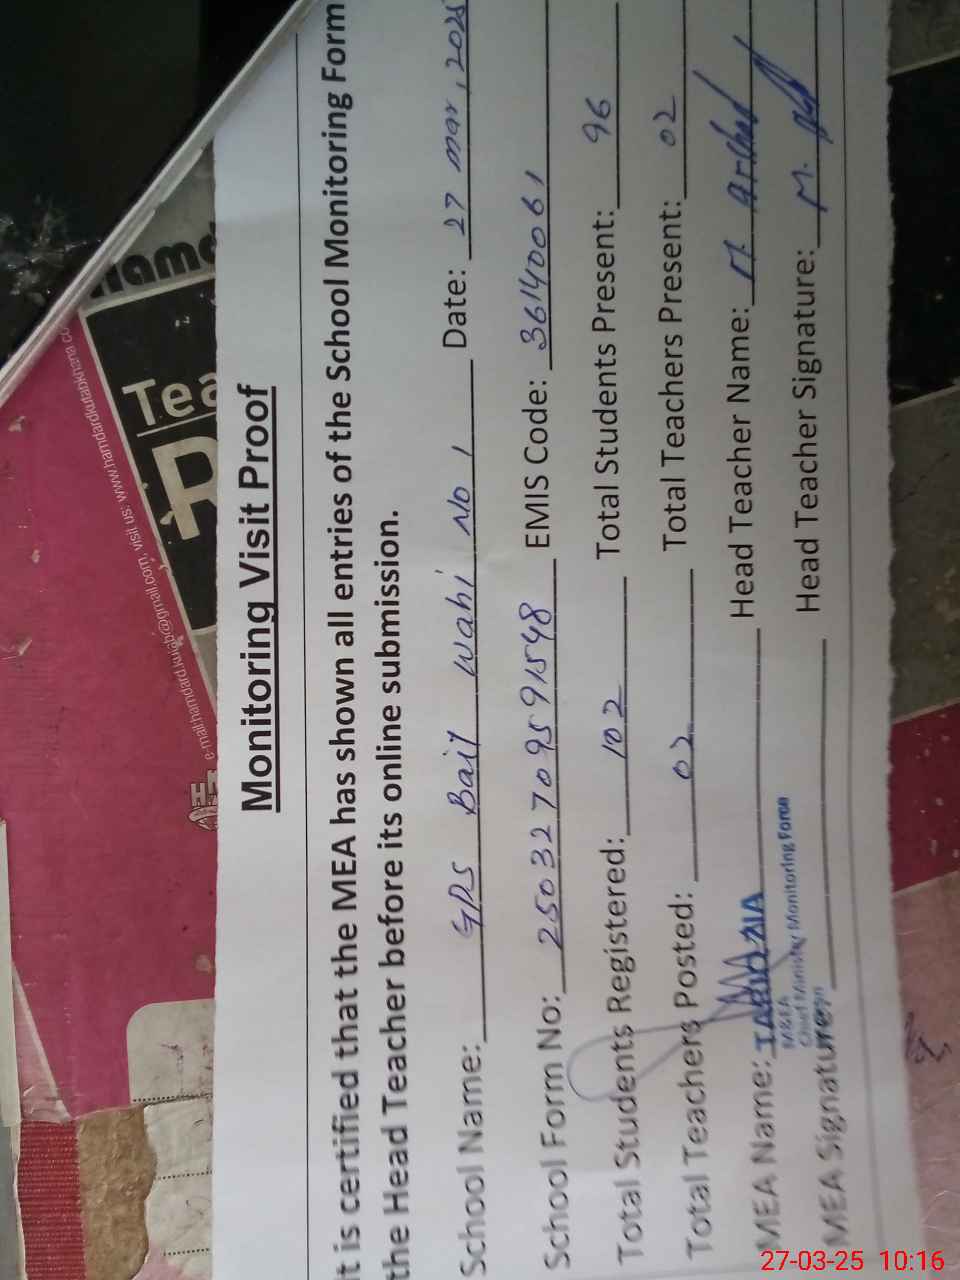 Monitoring Visit Proof
It is certified that the MEA has shown all entries of the School Monitoring Form
the Head Teacher before its online submission.
School Name: GPS Bait Wahi No 1 Date: 27 mar, 2025
School Form No: 25032709591548 EMIS Code: 36140061
Total Students Registered: 102 Total Students Present: 96
Total Teachers Posted: 02 Total Teachers Present: 02
MEA Name: TARIQ ZIA Head Teacher Name: M. Arshad
M&EA
Chief Minister Monitoring Force
MEA Signature: Head Teacher Signature: M.
Tea
R
e-mail:hamdard.kutab@gmail.com, visit us: www.hamdardkutabkhana.co
27-03-25 10:16